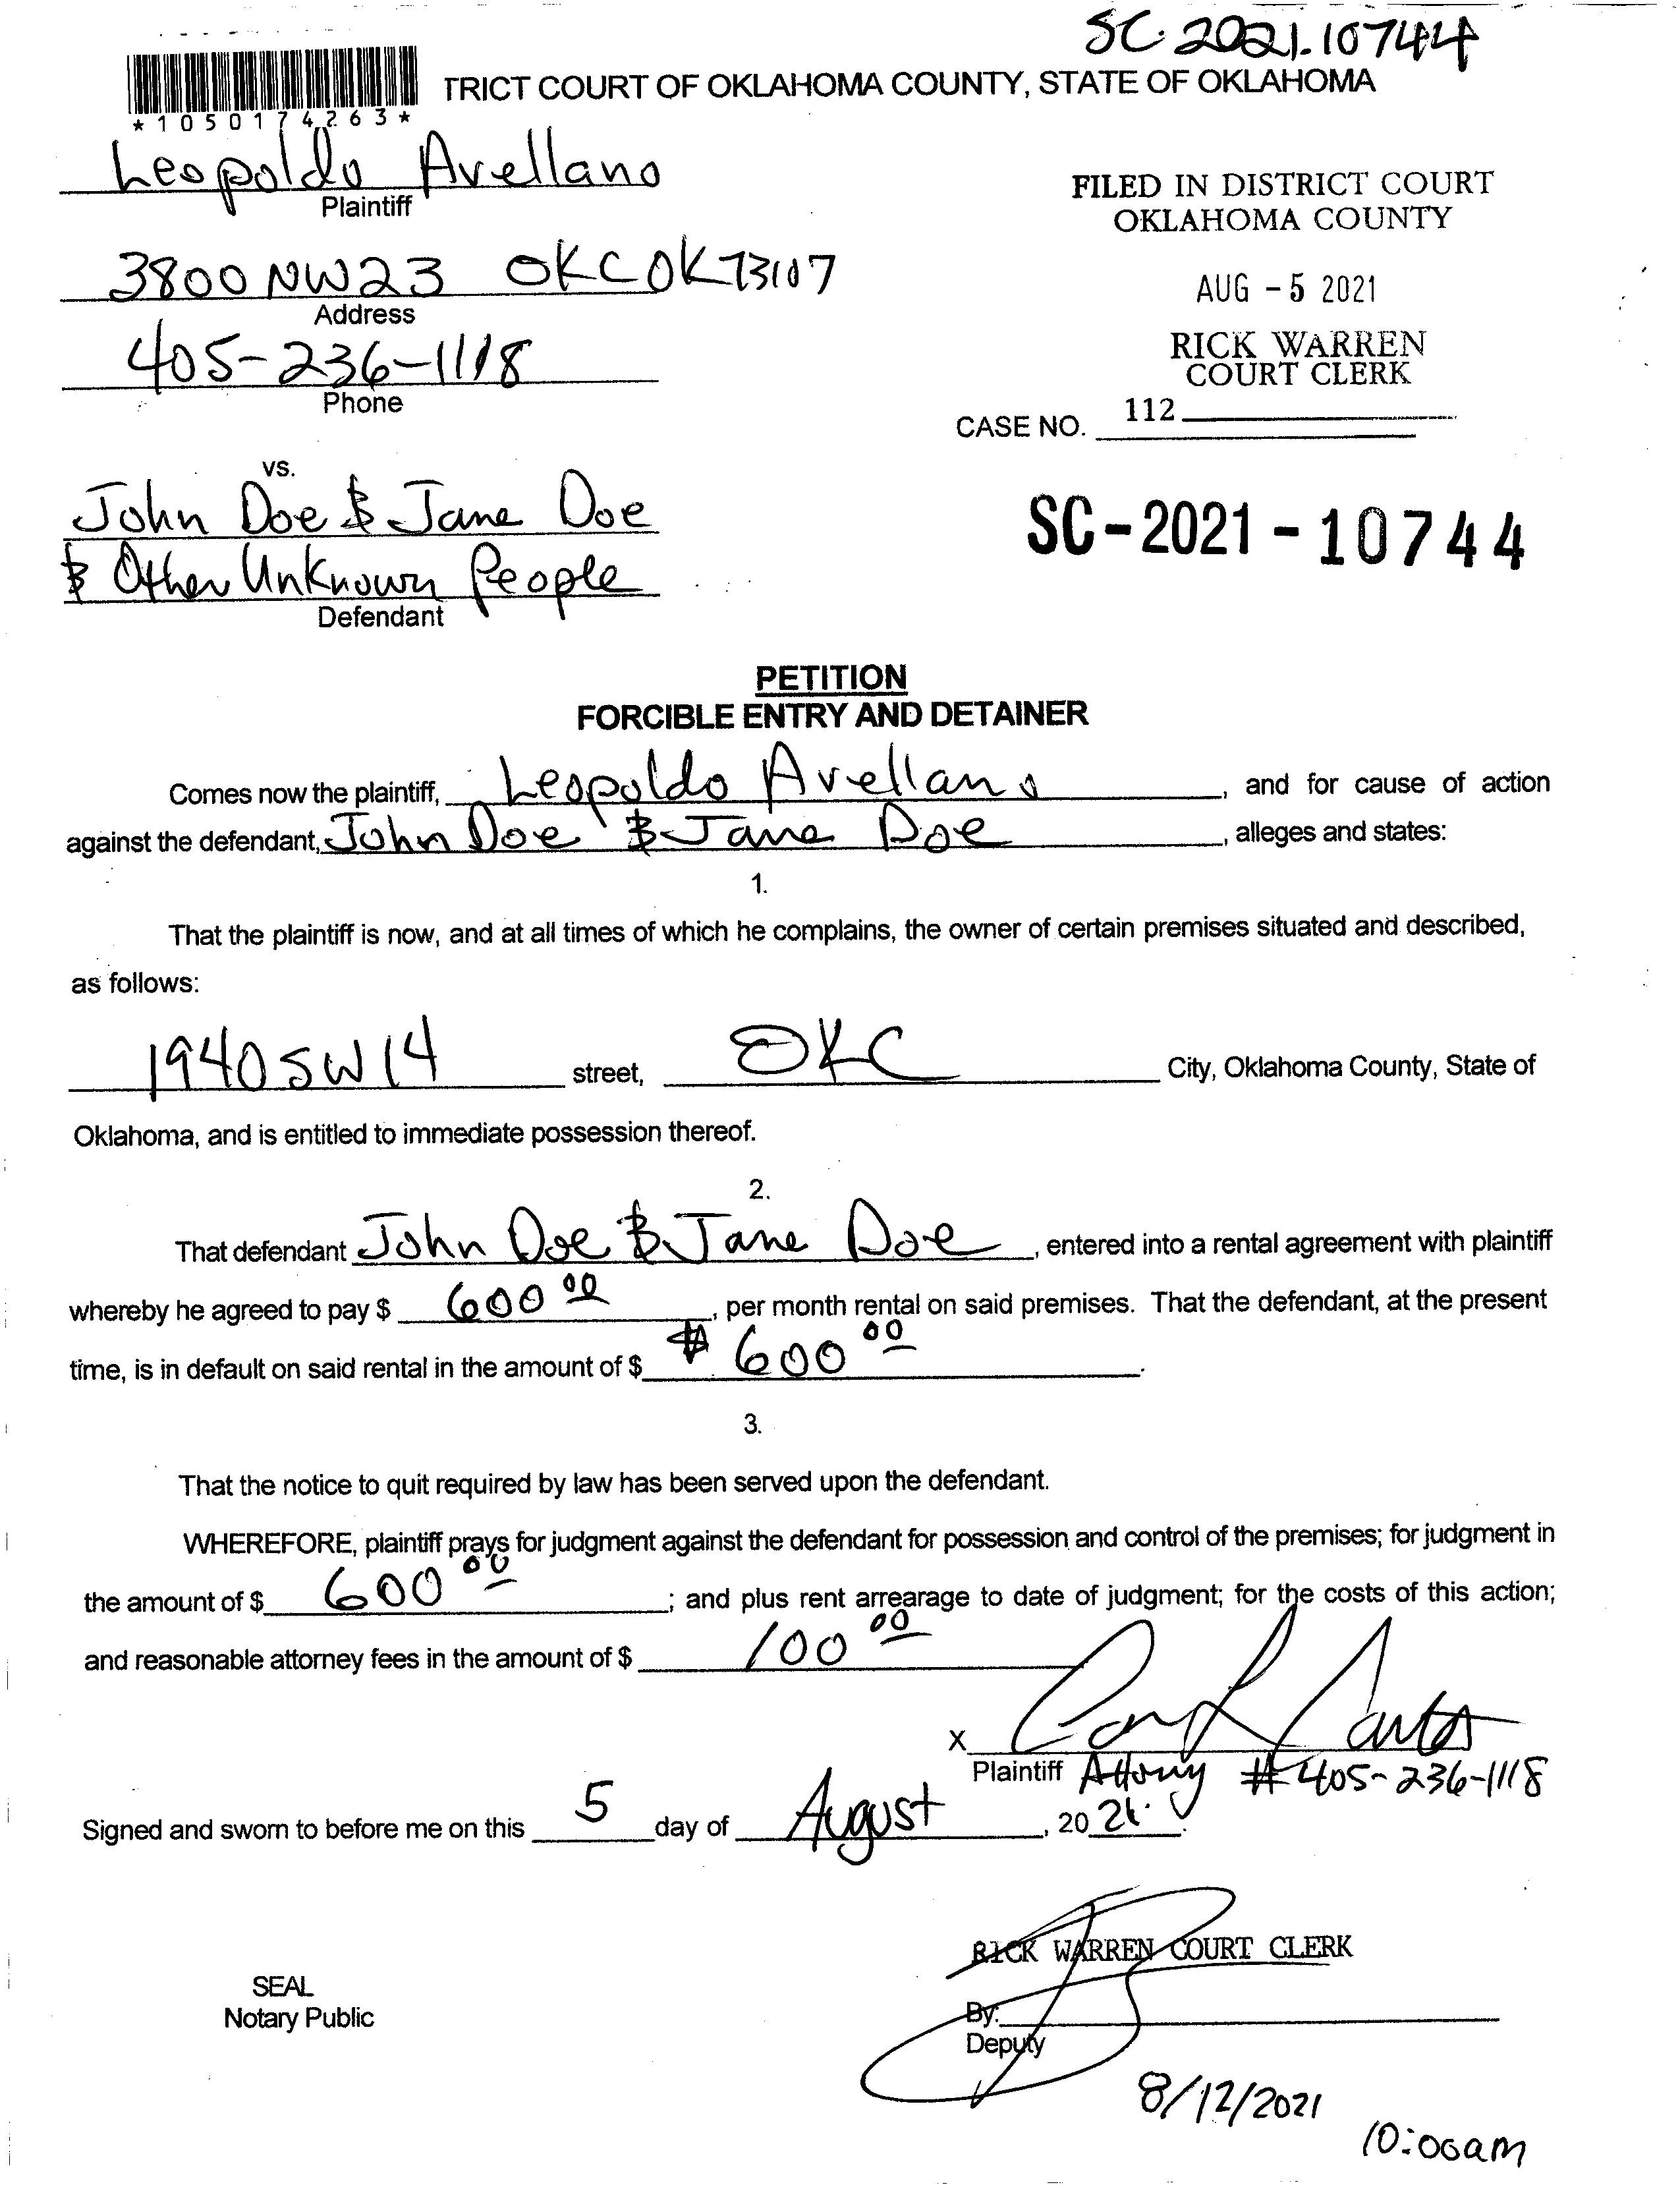 SC-2021-10744
TRICT COURT OF OKLAHOMA COUNTY, STATE OF OKLAHOMA
*1050174263*
Leopoldo Avellano
Plaintiff
FILED IN DISTRICT COURT
OKLAHOMA COUNTY
3800 NW 23 OKC OK 73107
Address
AUG - 5 2021
405-236-1118
Phone
RICK WARREN
COURT CLERK
CASE NO. 112
vs.
John Doe & Jane Doe
& Other Unknown People
Defendant
SC-2021-10744
PETITION
FORCIBLE ENTRY AND DETAINER
Comes now the plaintiff, Leopoldo Avellano, and for cause of action
against the defendant, John Doe & Jane Doe, alleges and states:
1.
That the plaintiff is now, and at all times of which he complains, the owner of certain premises situated and described,
as follows:
1940 SW 14 street, OKC City, Oklahoma County, State of
Oklahoma, and is entitled to immediate possession thereof.
2.
That defendant John Doe & Jane Doe, entered into a rental agreement with plaintiff
whereby he agreed to pay $ 600 00, per month rental on said premises. That the defendant, at the present
time, is in default on said rental in the amount of $ $ 600 00.
3.
That the notice to quit required by law has been served upon the defendant.
WHEREFORE, plaintiff prays for judgment against the defendant for possession and control of the premises; for judgment in
the amount of $ 600 00; and plus rent arrearage to date of judgment; for the costs of this action;
and reasonable attorney fees in the amount of $ 100 00
X
Plaintiff Attorny # 405-236-1118
Signed and sworn to before me on this 5 day of August, 2021.
RICK WARREN COURT CLERK
SEAL
Notary Public
By:
Deputy
8/12/2021
10:00am